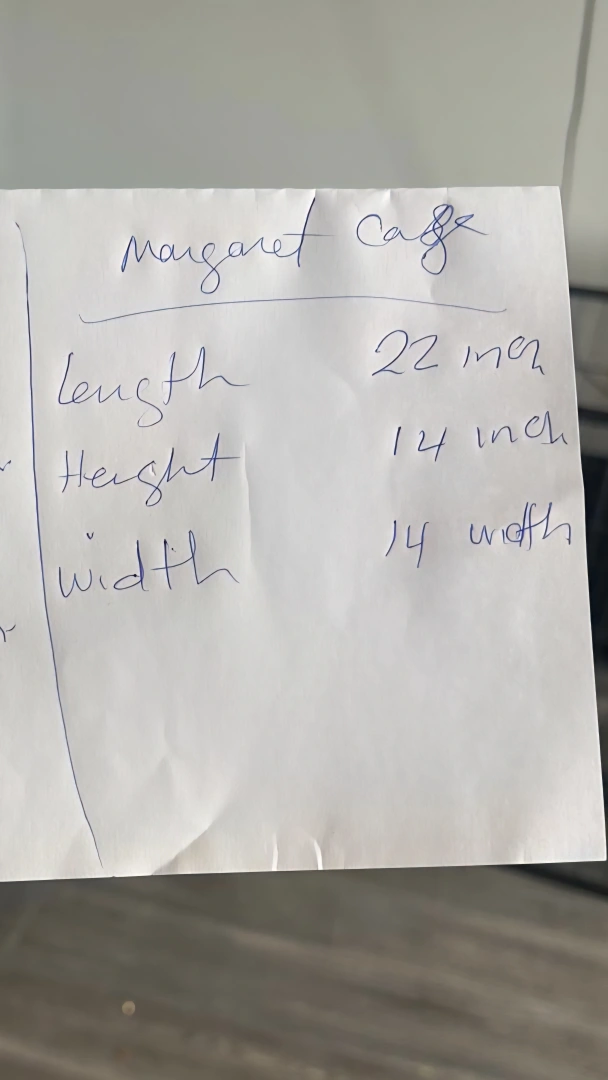 Margaret Cage
Length 22 inch
Height 14 inch
width 14 width